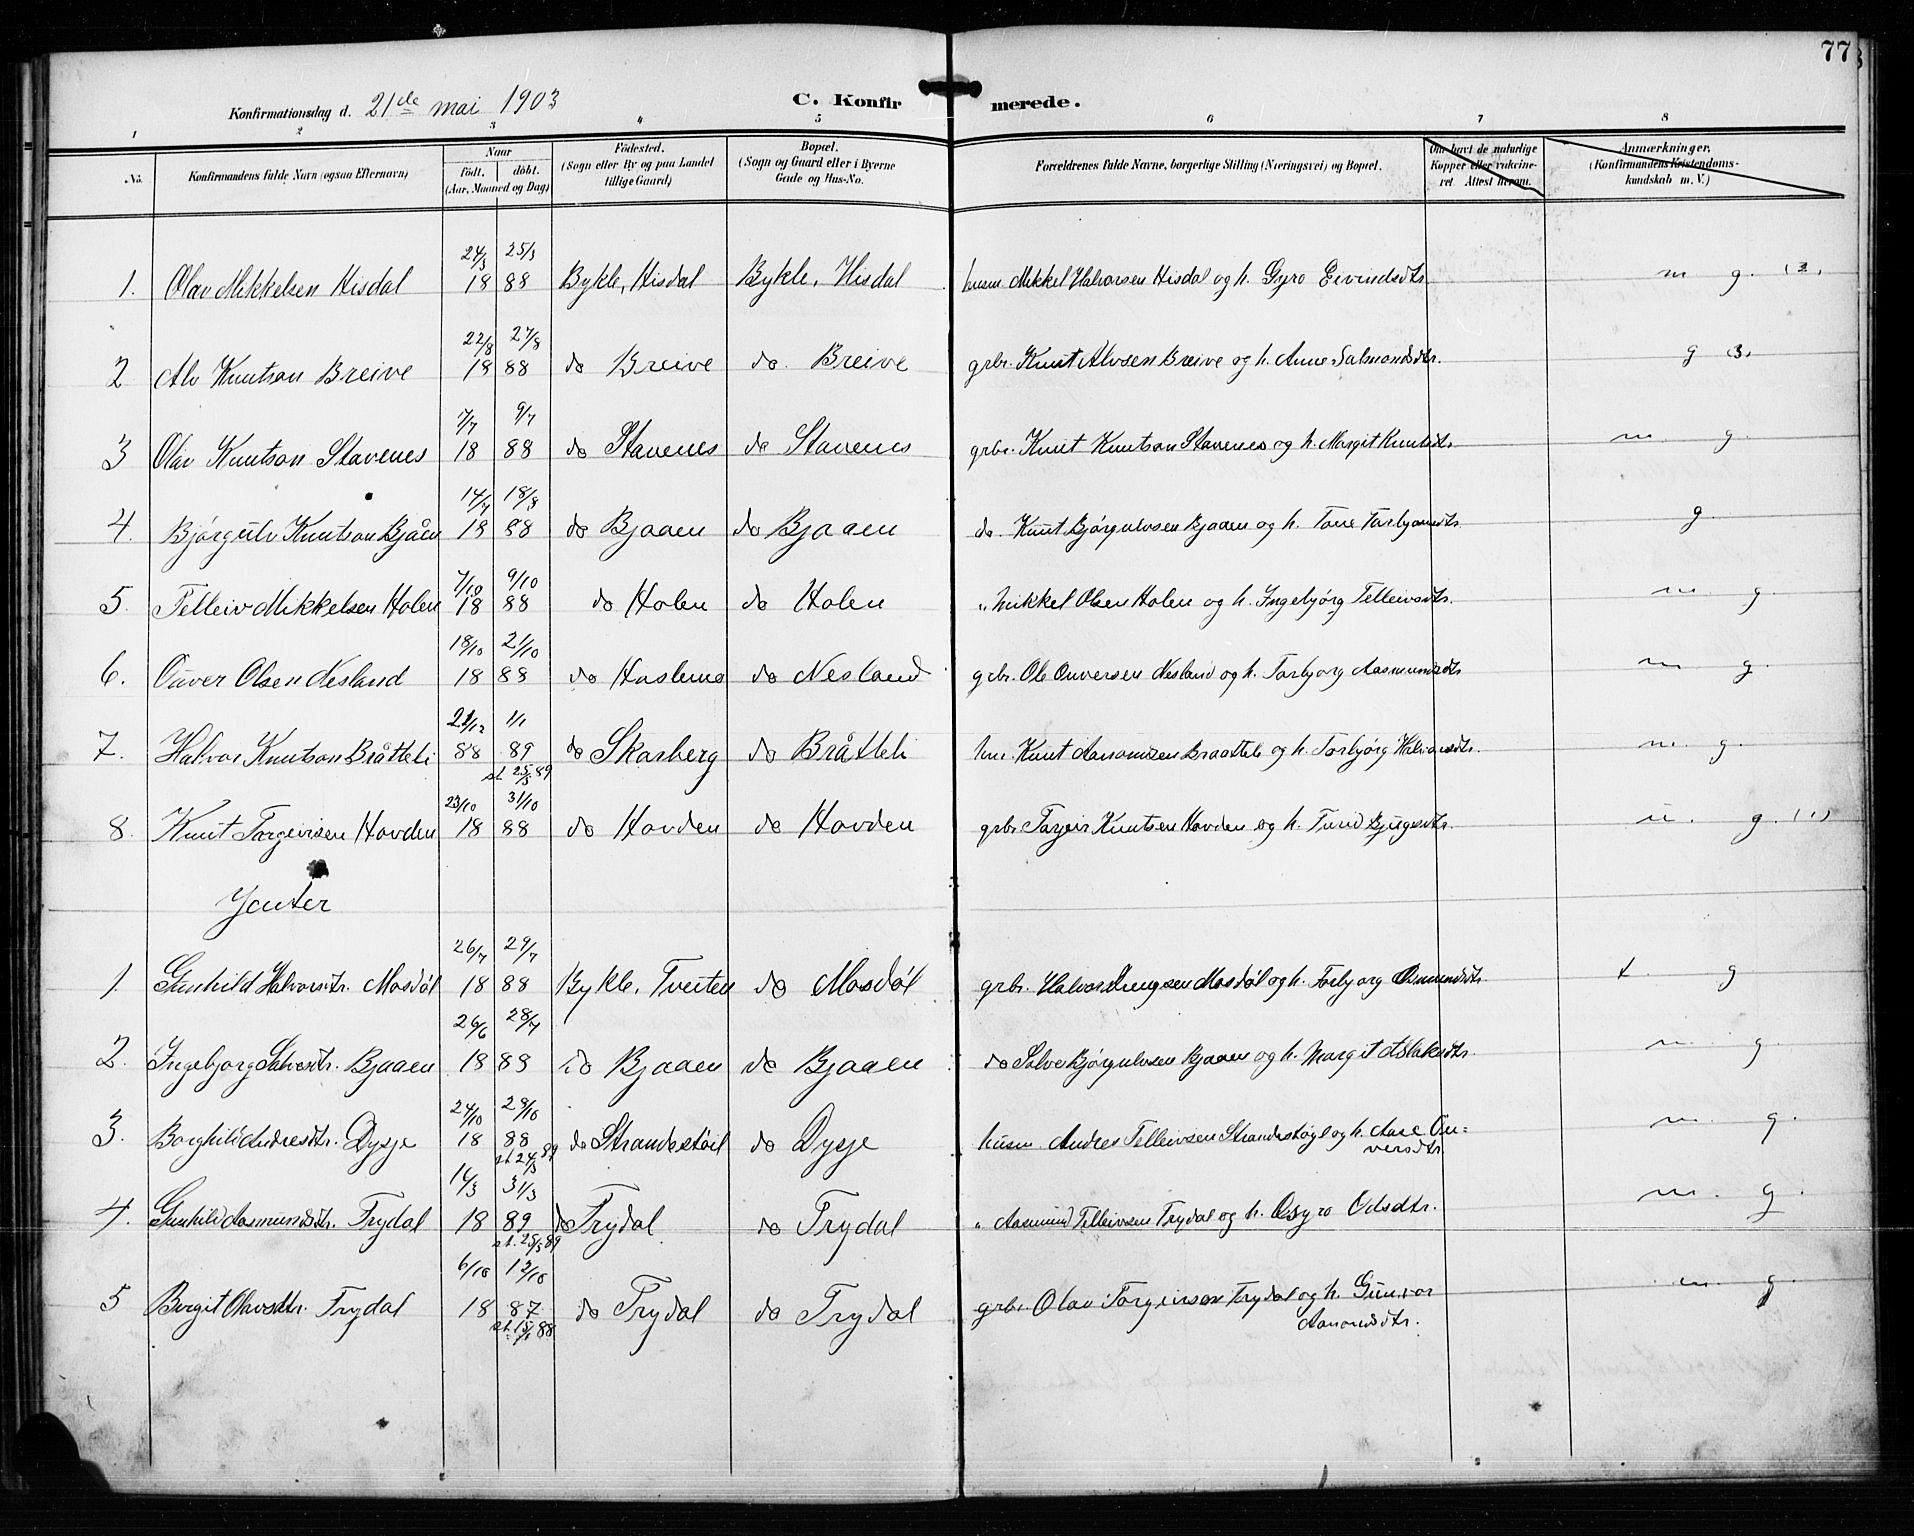 77
Konfirmationsdag d. 21de mai 1903 C. Konfirmerede.
1 2 3 4 5 6 7 8
No. Konfirmandens fulde Navn (ogsaa Efternavn) Naar født. døbt. (Aar, Maaned og Dag) Fødested. (Sogn eller By og paa Landet tillige Gaard) Bopæl. (Sogn og Gaard eller i Byerne Gade og Hus-No. Forældrenes fulde Navne, borgerlige Stilling (Næringsvei) og Bopæl. Om havt de naturlige Kopper eller vakcineret Attest herom. Anmærkninger. (Konfirmandens Kristendomskundskab m. V.)
24/3 25/3
1. Olav Mikkelsen Hisdal 18 88 Bykle, Hisdal Bykle, Hisdal husm Mikkel Halvorsen Hisdal og h. Gyro Eivindsdtr. m g. (3)
22/8 27/8
2 Alv Knutson Breive 18 88 do Breive do. Breive grbr. Knut Alvsen Breive og h. Anne Salmondsdtr. g (3)
7/7 9/7
3 Olav Knutson Stavenes 18 88 do Stavenes do Stavenes grbr. Knut Knutson Stavenes og h. Margit Knutsdtr m. g.
14/7 18/8
4. Bjørgulv Knutson Bjåen 18 88 do Bjaaen do Bjaaen do. Knut Bjørgulvsen Bjaaen og h. Tone Torbjørnsdtr. g.
7/10 9/10
5. Telleiv Mikkelsen Holen 18 88 do Holen do Holen " Mikkel Olsen Holen og h. Ingebjørg Telleivsdtr. m g.
18/10 21/10
6. Ouver Olsen Nesland 18 88 do do Nesland grbr. Ole Ouversen Nesland og h. Torbjorg Aasmundsdtr m g.
21/12 1/1
7. Halvor Knutson Bråtteli 88 89 do Skarberg do Bråtteli Knut Aanondsen Braatteli og h. Torbjørg Halvorsdtr. m. g.
st. 25/3 89
23/10 31/10
8. Knut Torgeirsen Hovden 18 88 do Hovden do Hovden grbr. Torgeir Knutsen Hovden og h. Turid Bjugsdtr. u. g. (1)
Jenter
26/7 29/7
1. Gunhild Halvorsdtr. Mosdøl 18 88 Bykle, Tveiten do Mosdøl grbr. Halvor Drengsen Mosdøl og h. Torbjorg Osmundsdtr. t. g
26/6 28/7
2. Ingebjorg Salvesdtr. Bjaaen 18 88 do Bjaaen do Bjaaen do Salve Bjørgulvsen Bjaaen og h. Margit Aslaksdtr. m. g.
24/10 28/10
3. Borghild Andresdtr. Dysje 18 88 do Strandestøil do Dysje husm. Andres Telleivsen Strandestøyl og h. Aase Ouversdtr. m. g.
st. 24/3 89
14/3 31/3
4. Gunhild Aasmundsdtr. Trydal 18 89 do Trydal do Trydal " Aasmund Telleivsen Trydal og h. Gyro Odsdtr. m. g.
st. 25/3 89
6/10 12/10
5 Birgit Olavsdtr. Trydal 18 87 do Trydal do Trydal grbr. Olav Torgeirsen Trydal og h. Gunvor Aanondsdtr. m. g.
st. 15/1 88